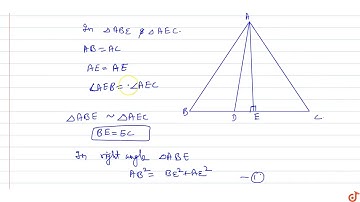 In △ABE & △AEC.
AB = AC
AE = AE
∠AEB = ∠AEC
△ABE ~ △AEC
BE = EC
In right angle △ABE
AB² = BE² + AE² —①
A
B D E C